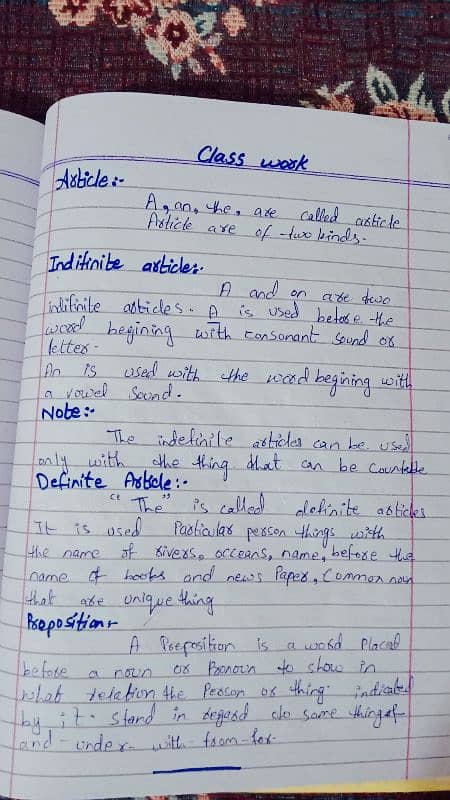 Class work
Article:-
A, an, the, are called article
Article are of two kinds.
Indifinite article:-
A and on are two
indifinite articles. A is used before the
word begining with consonant sound or
letter.
An is used with the word begining with
a vowel sound.
Note:-
The indefinite articles can be used
only with the thing that can be Countable
Definite Article:-
"The" is called definite articles
It is used Particular person things with
the name of rivers, occeans, name, before the
name of books and news Paper, Common noun
that are unique thing
Preposition
A Preposition is a word Placed
before a noun or Pronoun to show in
what relation the Person or thing indicated
by it. stand in regard to some thing of
and - under - with - from - for.